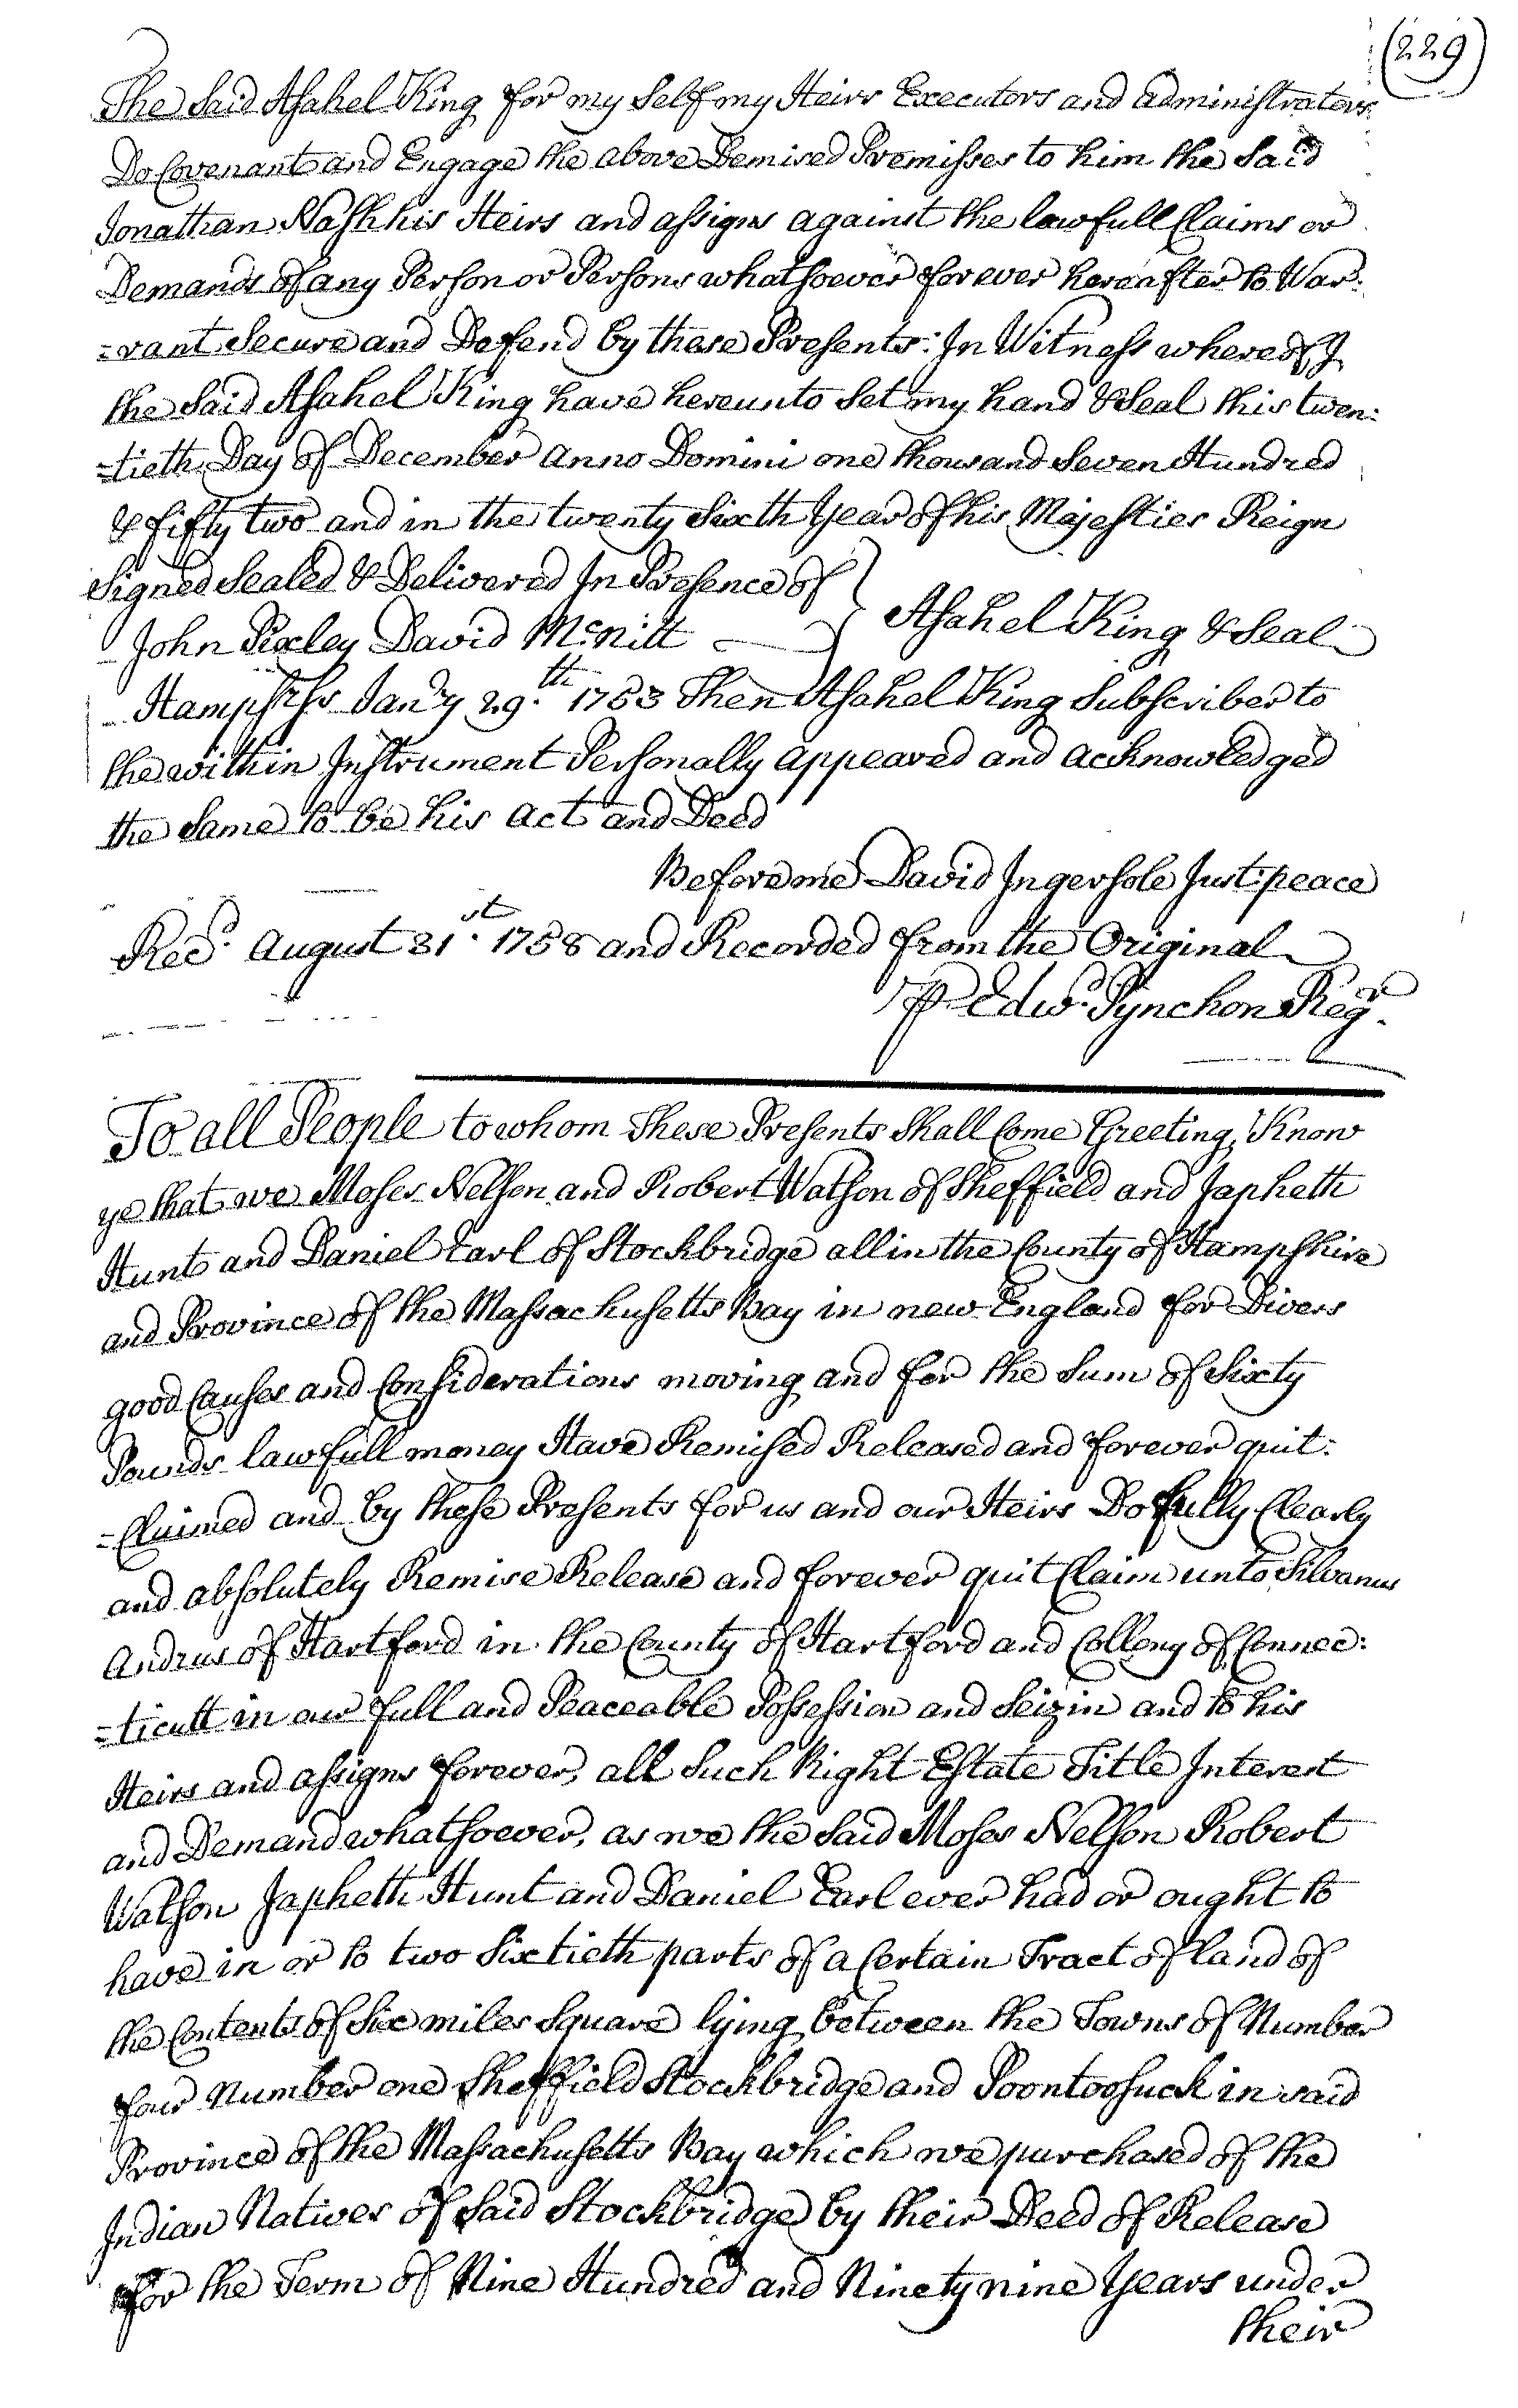 (229)
The Said Asahel King for my Self my Heirs Executors and administrators
Do Covenant and Engage the above Demised Premisses to him the Said
Jonathan Nash his Heirs and assigns against the lawfull Claims or
Demands of any Person or Persons whatsoever forever hereafter to War:
=rant Secure and Defend by these Presents: In Witness whereof I
the Said Asahel King have hereunto Set my hand & Seal this twen:
=tieth Day of December anno Domini one thousand Seven Hundred
& fifty two and in the twenty Sixth Year of his Majesties Reign
Signed Sealed & Delivered In Presence of
John Pixley David McNitt } Asahel King & Seal
Hampshr Ss Jan'y 29.th 1753 Then Asahel King Subscriber to
the within Instrument Personally appeared and acknowledged
the Same to be his act and Deed
Before me David Ingersole Just: peace
Recd. August 31.st 1758 and Recorded from the Original
⅌ Edwd. Pynchon Regr.
To all People to whom These Presents Shall Come Greeting, Know
ye that we Moses Nelson and Robert Watson of Sheffield and Japheth
Hunt and Daniel Earl of Stockbridge all in the County of Hampshire
and Province of the Massachusetts Bay in new England for Divers
good Causes and Considerations moving and for the Sum of Sixty
Pounds lawfull money Have Remised Released and forever quit:
=Claimed and by these Presents for us and our Heirs Do fully Clearly
and absolutely Remise Release and forever quit Claim unto Silvanus
Andrus of Hartford in the County of Hartford and Colleny of Connec:
=ticutt in our full and Peaceable Possession and Seizin and to his
Heirs and assigns forever, all Such Right Estate Title Interest
and Demand whatsoever, as we the Said Moses Nelson Robert
Watson Japheth Hunt and Daniel Earl ever had or ought to
have in or to two Sixtieth parts of a Certain Tract of land of
the Contents of Six miles Square lying between the Towns of Number
four Number one Sheffield Stockbridge and Poontoosuck in said
Province of the Massachusetts Bay which we purchased of the
Indian Natives of Said Stockbridge by their Deed of Release
for the Term of Nine Hundred and Ninety nine Years under
their